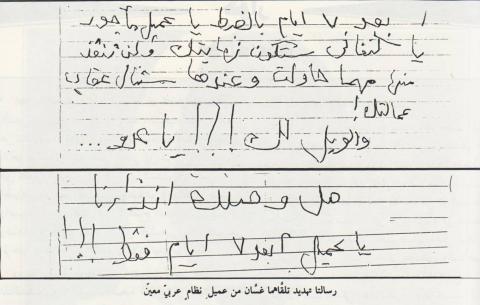 بعد ٧ ايام بالضبط يا عميل مأجور
يا كنفاني ستكون نهايتك ولن تنفذ
منها مهما حاولت وعندها ستنال عقاب
عمالتك!
والويل لك !!! يا عدو ...
هل وصلك انذارنا
يا عميل ؟ بعد ٧ ايام فقط !!!
رسالتا تهديد تلقّاهما غسّان من عميلِ نظامٍ عربيّ معينّ